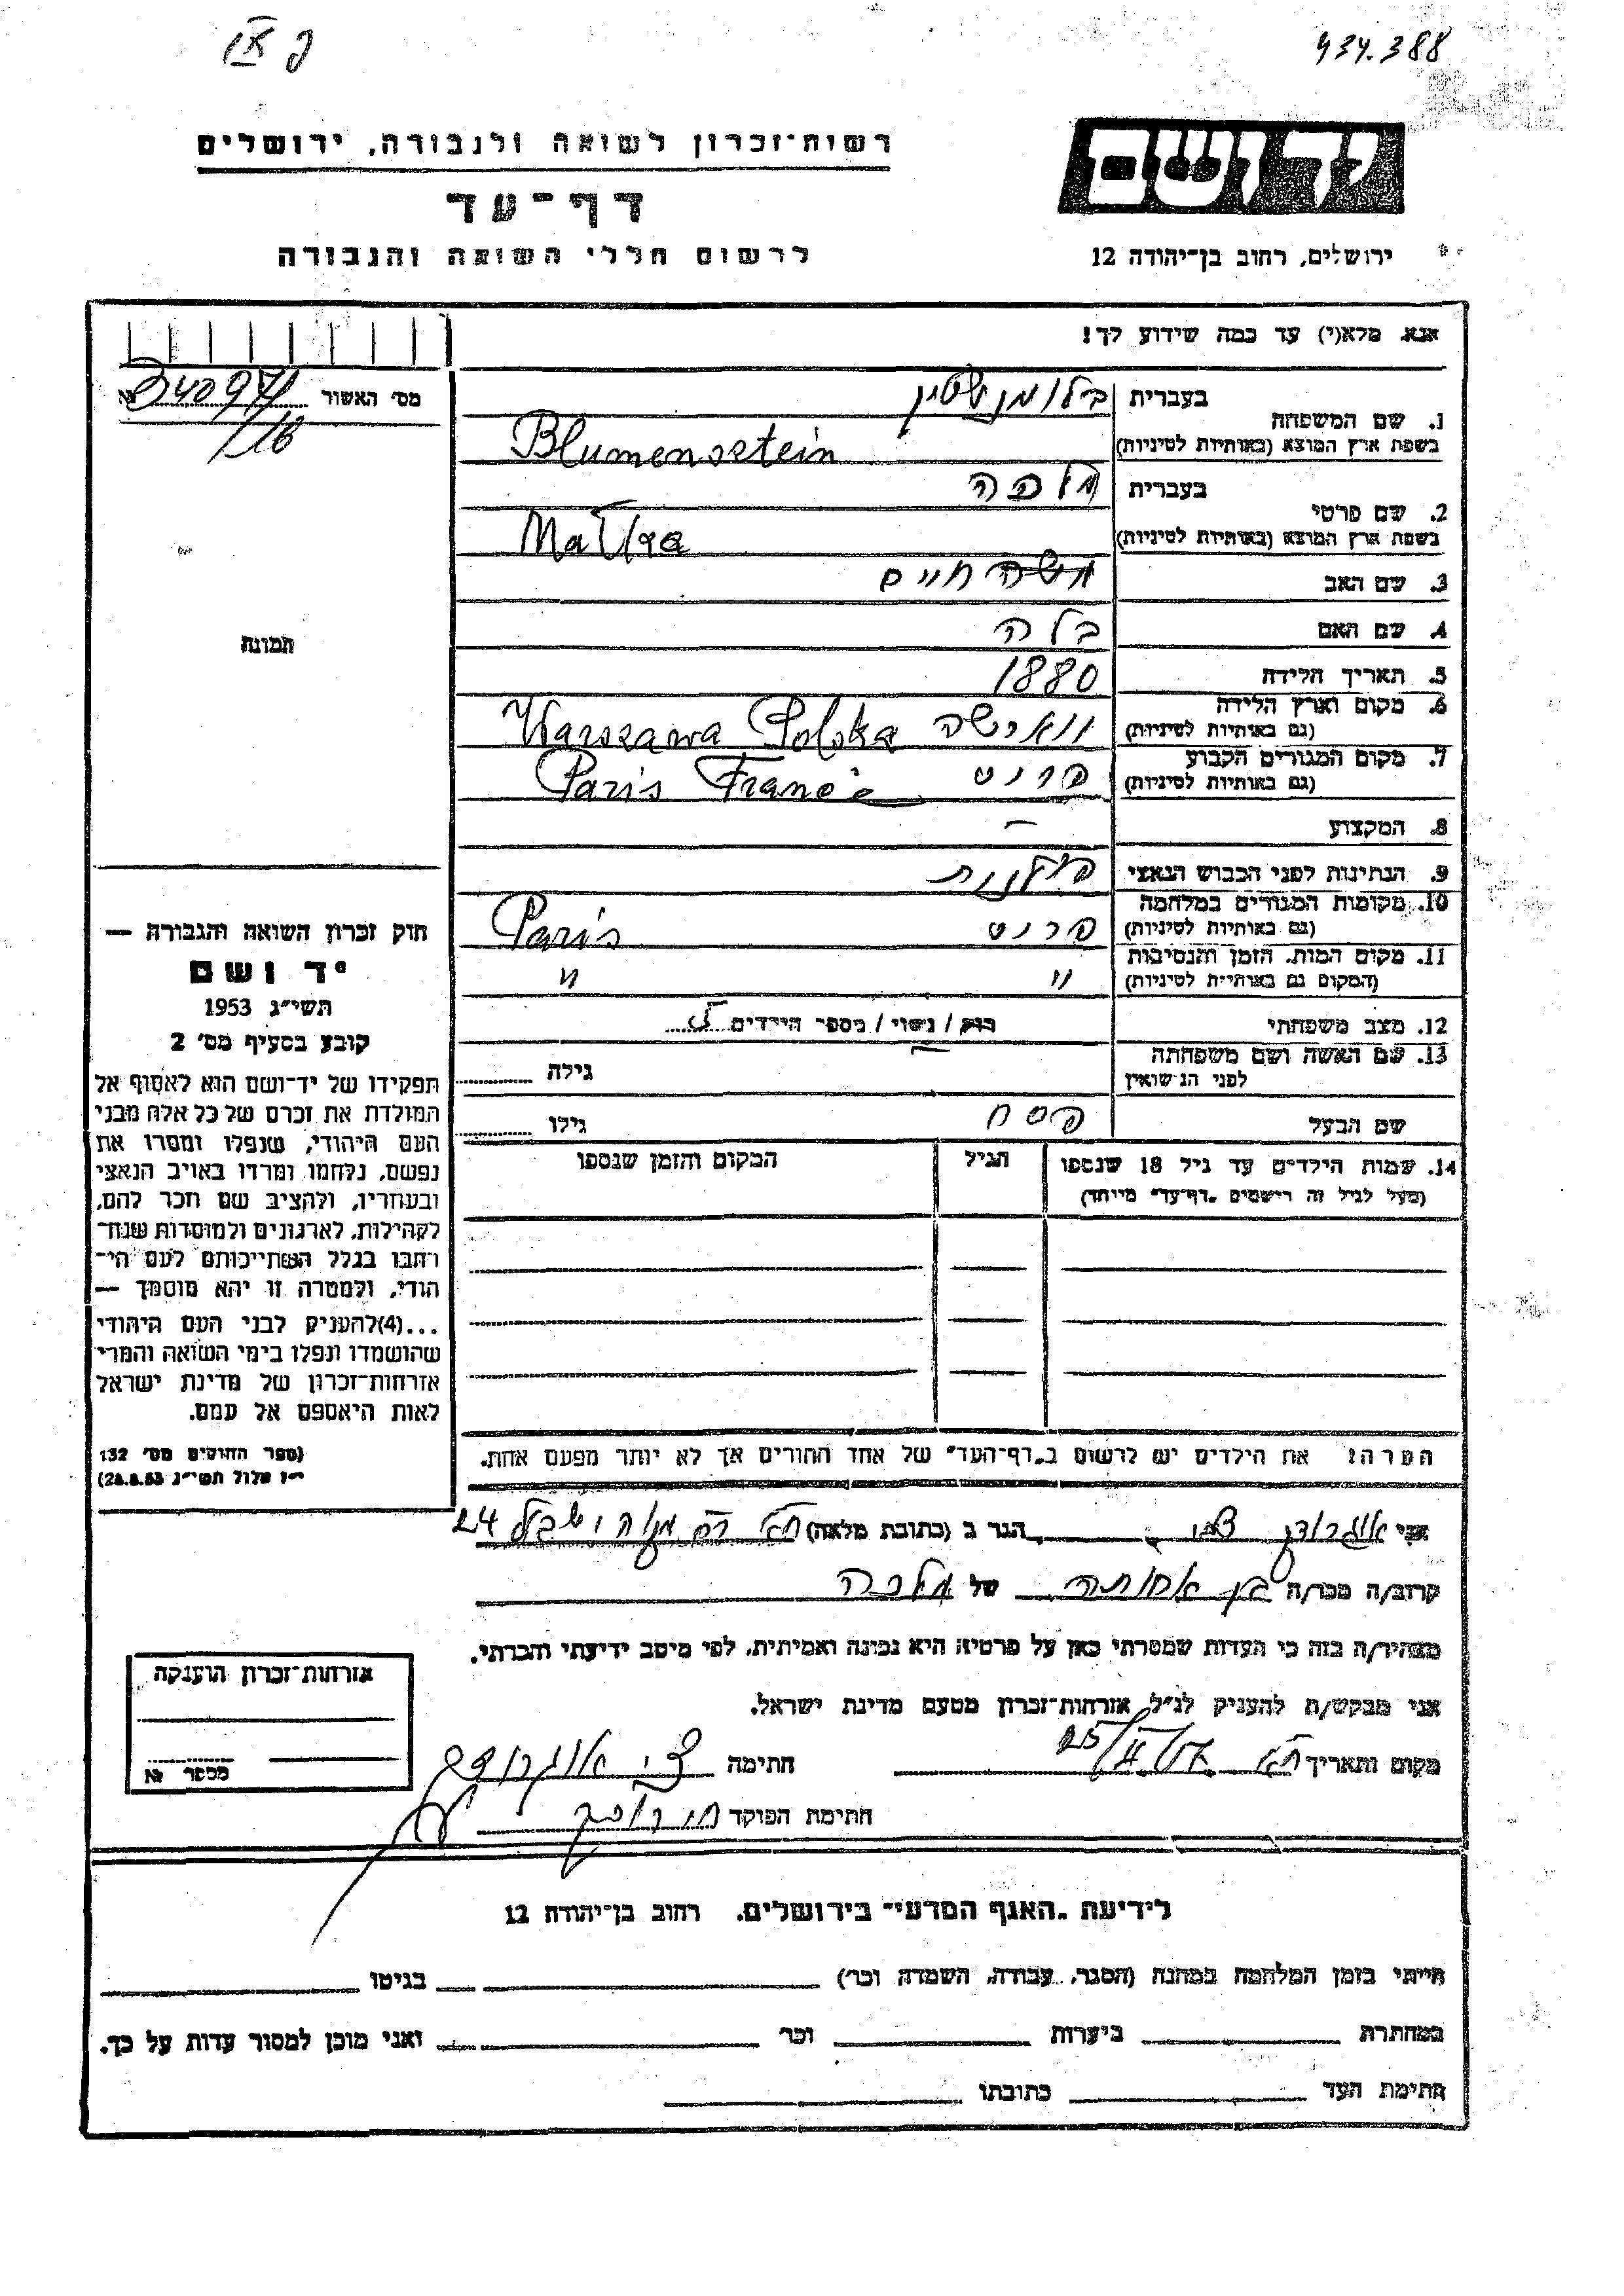 434.388
רשות־זכרון לשואה ולגבורה, ירושלים
יד ושם
דף־עד
לרשום חללי השואה והגבורה
ירושלים, רחוב בן־יהודה 12
אנא, מלא(י) עד כמה שידוע לך!
מס׳ האשור № 340971
/16
1. שם המשפחה
בעברית בלומנשטיין
בשפת ארץ המוצא (באותיות לטיניות) Blumensztein
2. שם פרטי
בעברית מלכה
בשפת ארץ המוצא (באותיות לטיניות) Malka
3. שם האב חיים
4. שם האם בלה
5. תאריך הלידה 1880
6. מקום וארץ הלידה
(גם באותיות לטיניות) ווארשה Warszawa Polska
7. מקום המגורים הקבוע
(גם באותיות לטיניות) פריס Paris France
8. המקצוע –
9. הנתינות לפני הכבוש הנאצי פולנית
10. מקומות המגורים במלחמה
(גם באותיות לטיניות) פריס Paris
11. מקום המות, הזמן והנסיבות
(המקום גם באותיות לטיניות) " "
12. מצב משפחתי רווק / נשוי / מספר הילדים
13. שם האשה ושם משפחתה
לפני הנישואין – גילה
שם הבעל פסח גילו
14. שמות הילדים עד גיל 18 שנספו הגיל המקום והזמן שנספו
(מעל לגיל זה רישמים „דף־עד" מיוחד)
הערה! את הילדים יש לרשום ב„דף־העד" של אחד ההורים אך לא יותר מפעם אחת.
תמונה
חוק זכרון השואה והגבורה —
יד ושם
תשי״ג 1953
קובע בסעיף מס׳ 2
תפקידו של יד־ושם הוא לאסוף אל
המולדת את זכרם של כל אלה מבני
העם היהודי, שנפלו ומסרו את
נפשם, נלחמו ומרדו באויב הנאצי
ובעוזריו, ולהציב שם וזכר להם,
לקהילות, לארגונים ולמוסדות שנח־
רבו בגלל השתייכותם לעם הי־
הודי, ולמטרה זו יהא מוסמך —
...(4)להעניק לבני העם היהודי
שהושמדו ונפלו בימי השואה והמרי
אזרחות־זכרון של מדינת ישראל
לאות היאספם אל עמם.
(ספר החוקים מס׳ 132
י״ז אלול תשי״ג 28.8.53)
אני צבי הגר ב (כתובת מלאה) 24
קרוב/ה מכר/ה בן אחותה של מלכה
מצהיר/ה בזה כי העדות שמסרתי כאן על פרטיה היא נכונה ואמיתית, לפי מיטב ידיעתי והכרתי.
אני מבקש/ת להעניק לנ״ל אזרחות־זכרון מטעם מדינת ישראל.
מקום ותאריך ת״א 25/ חתימה צבי
חתימת הפוקד
אזרחות־זכרון הוענקה
מספר №
לידיעת „האגף המדעי" בירושלים, רחוב בן־יהודה 12
הייתי בזמן המלחמה במחנה (הסגר, עבודה, השמדה וכו׳) בגיטו
במחתרת ביערות וכו׳ ואני מוכן למסור עדות על כך.
חתימת העד כתובתו